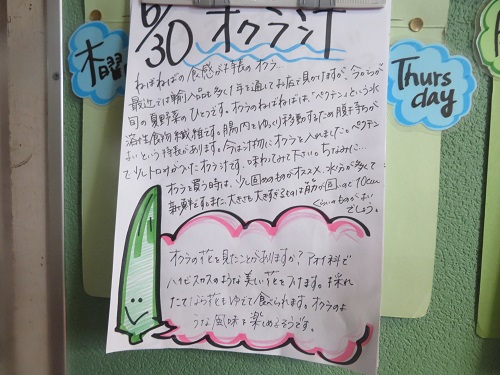 6/30 オクラ汁
木曜
Thursday
ねばねばの食感が特長のオクラ。
最近では輸入品も多く1年を通してお店で見かけますが、今のころが
旬の夏野菜のひとつです。オクラのねばねばは「ペクチン」という水
溶性食物繊維です。腸内をゆっくり移動するため腹持ちが
よいという特長があります。今日は汁物にオクラを入れました。ペクチン
で少しトロみがついたオクラ汁です。味わってみて下さい。ちなみに…
オクラを買う時は、少し固めのものがオススメ。水分が多くて
新鮮です。また、大きさも大きすぎるものは筋が固いので10cm
くらいのものがよい
でしょう。
オクラの花を見たことがありますか?アオイ科で
ハイビスカスのような美しい花をつけます。採れ
たてなら花もゆでて食べられます。オクラのよ
うな風味を楽しめるそうです。